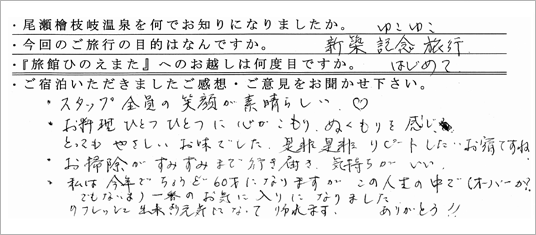 ・尾瀬檜枝岐温泉を何でお知りになりましたか。 ゆこゆこ
・今回のご旅行の目的はなんですか。 新築記念旅行
・『旅館ひのえまた』へのお越しは何度目ですか。 はじめて
・ご宿泊いただきましたご感想・ご意見をお聞かせ下さい。
・スタッフ全員の笑顔が素晴らしい。♡
・お料理ひとつひとつに心がこもり、ぬくもりを感じ、
とってもやさしいお味でした。是非是非リピートしたいお宿ですね
・お掃除がすみずみまで行き届き、気持ちがいい。
・私は今年でちょうど60才になりますがこの人生の中で(オーバーか?
でもないよ)一番のお気に入りになりました
リフレッシュ出来お元気になって帰れます。 ありがとう!!